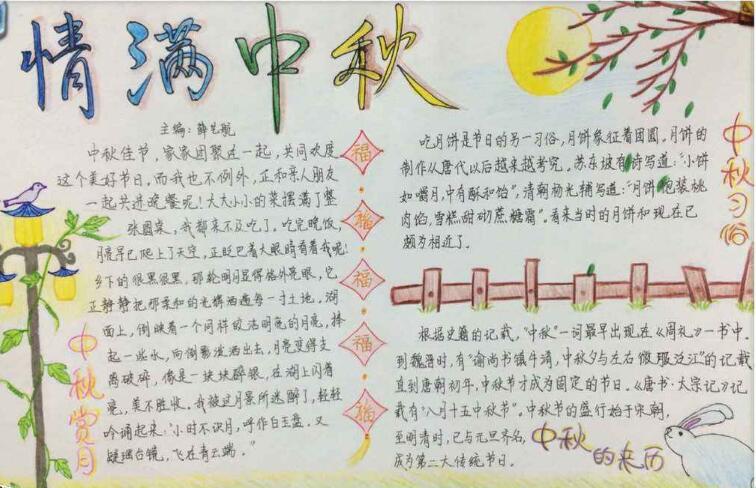 情满中秋
主编：薛艺航
中秋佳节，家家团聚在一起，共同欢度
这个美好节日。而我也不例外，正和家人朋友
一起共进晚餐呢！大大小小的菜摆满了整
张圆桌，我都来不及吃了。吃完晚饭，
月亮早已爬上了天空，正眨巴着大眼睛看着我呢！
乡下的很黑很黑，那轮明月显得格外亮眼，它
正静静把那柔和的光辉洒遍每一寸土地。湖
面上，倒映着一个同样皎洁明亮的月亮，捧
起一些水，向倒影泼洒出去，月亮变得支
离破碎，像是一块块碎银，在湖上闪着
亮，美不胜收。我被这月景所迷醉了，轻轻
吟诵起来：“小时不识月，呼作白玉盘。又
疑瑶台镜，飞在青云端。”
中秋赏月
福
福
福
福
福
吃月饼是节日的另一习俗，月饼象征着团圆。月饼的
制作从唐代以后越来越考究。苏东坡有诗写道：“小饼
如嚼月，中有酥和饴”，清朝杨光辅写道：“月饼包装桃
肉馅，雪糕甜砌蔗糖霜”。看来当时的月饼和现在已
颇为相近了。
中秋习俗
根据史籍的记载，“中秋”一词最早出现在《周礼》一书中。
到魏晋时，有“谕尚书镇牛渚，中秋夕与左右微服泛江”的记载
直到唐朝初年，中秋节才成为固定的节日。《唐书·太宗记》记
载有“八月十五中秋节”。中秋节的盛行始于宋朝，
至明清时，已与元旦齐名，
成为第二大传统节日。
中秋的来历